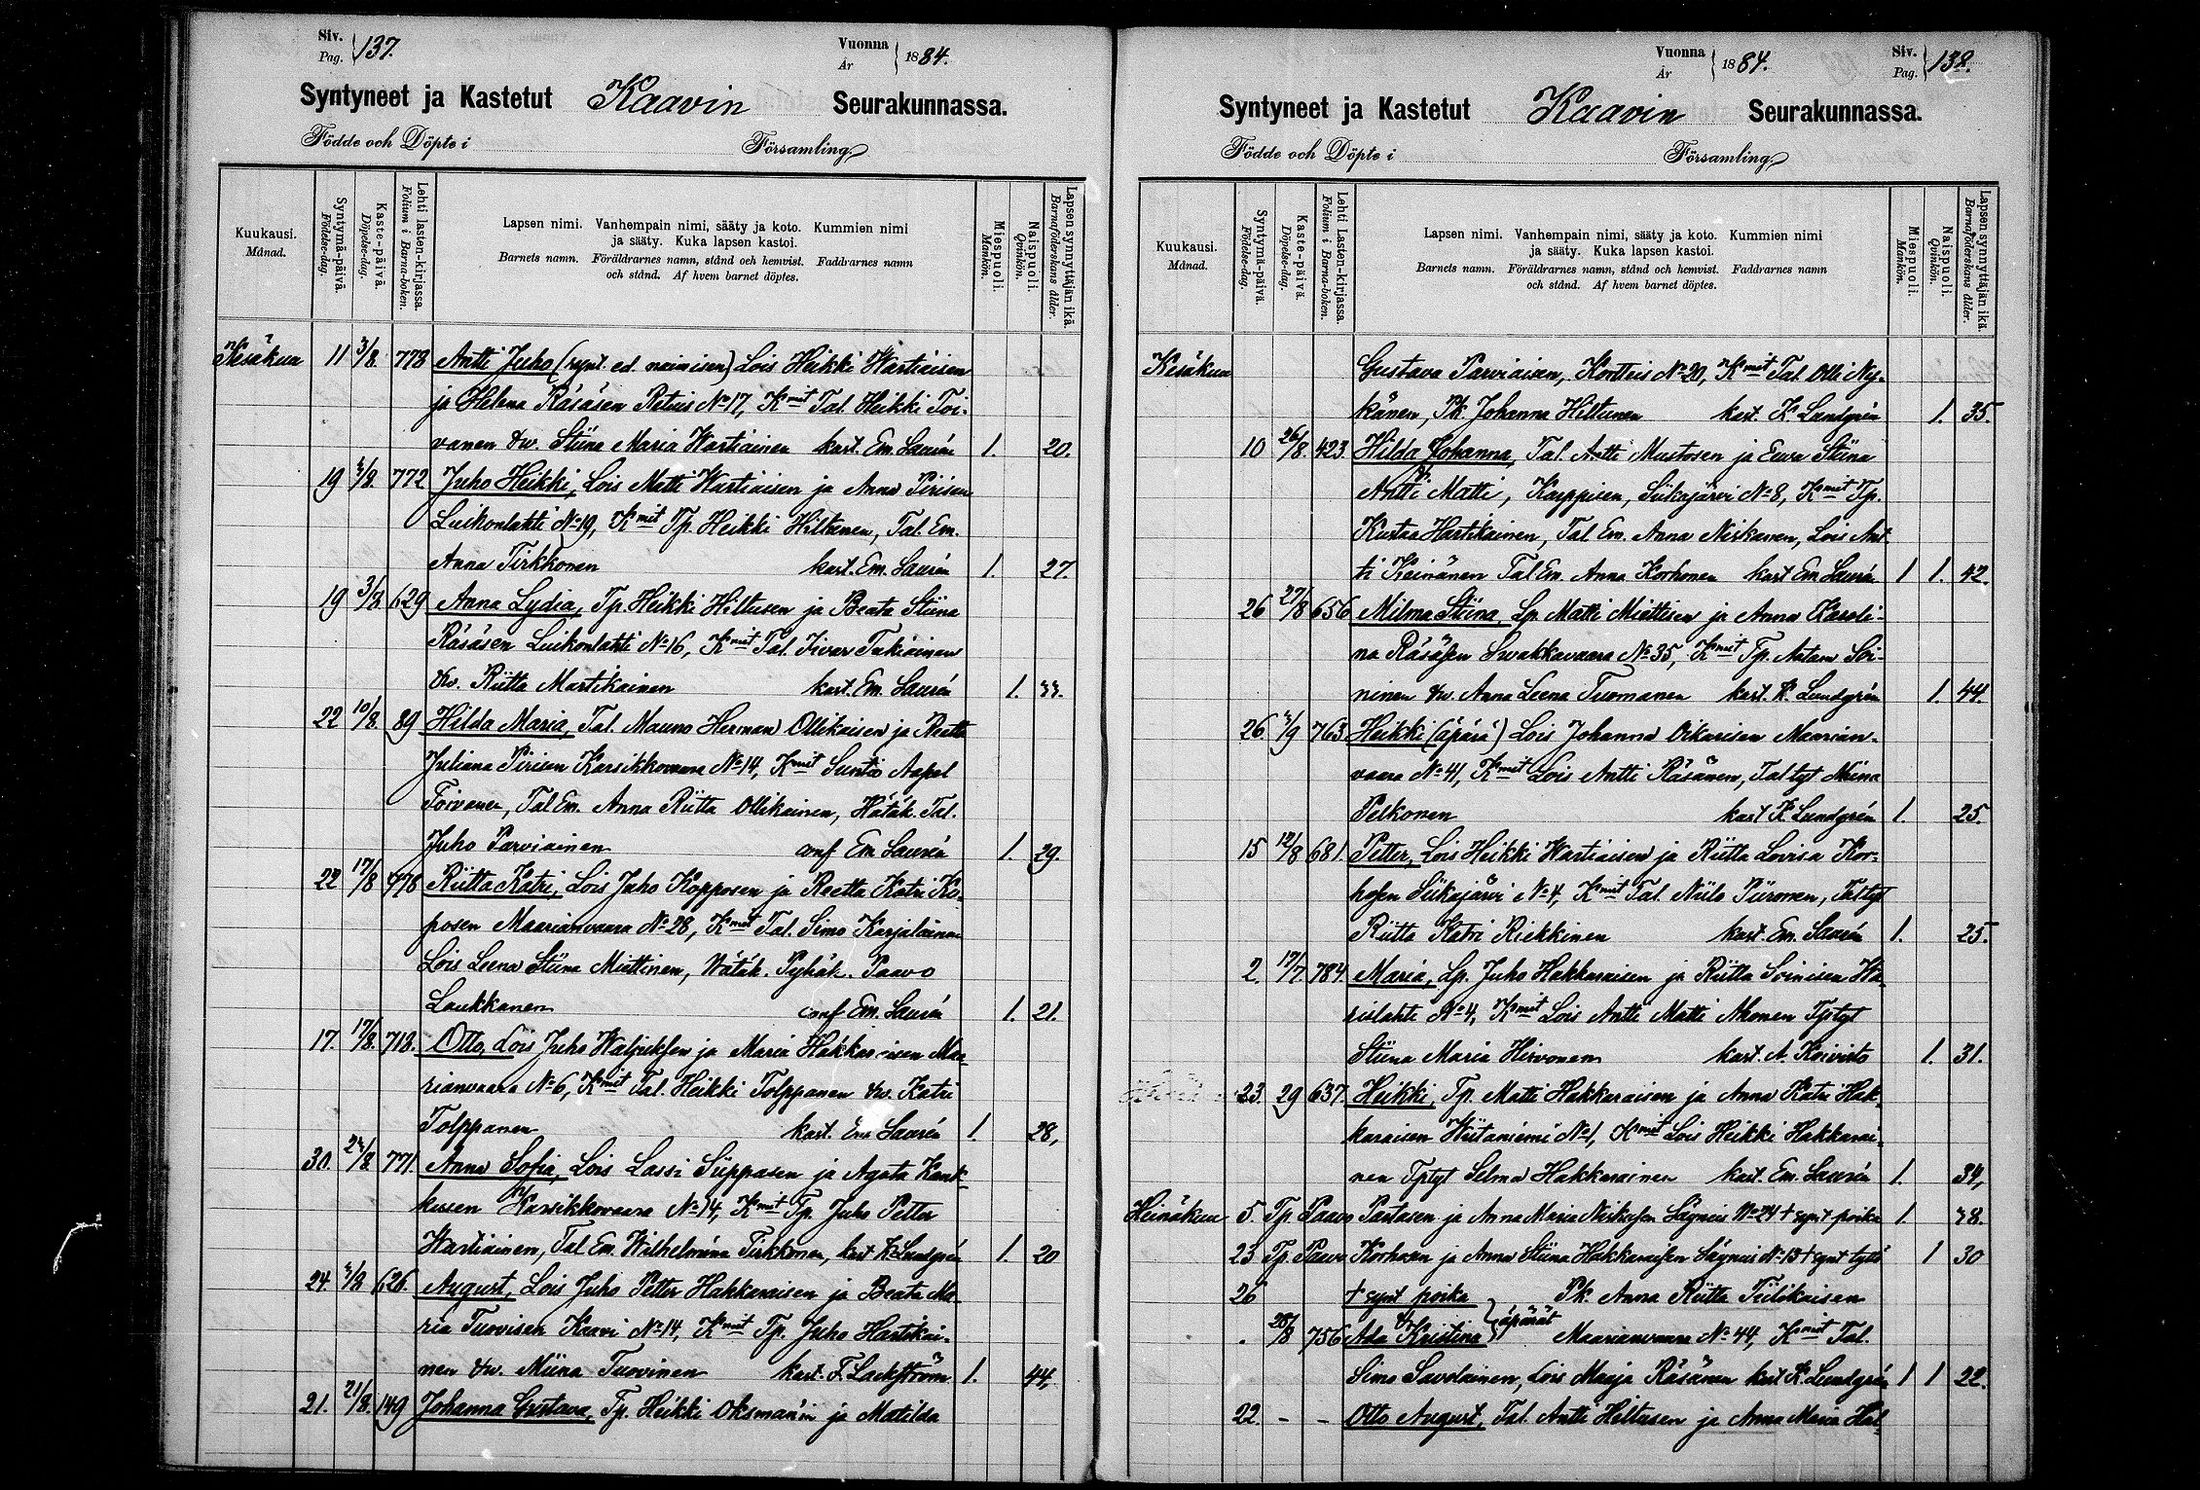 Siv. Pag. 137.
Vuonna År 1884.
Syntyneet ja Kastetut Kaavin Seurakunnassa.
Födde och Döpte i Församling
Kuukausi. Månad.
Syntymä-päivä. Födelse-dag.
Kaste-päivä. Döpelse-dag.
Lehti lasten-kirjassa. Folium i Barna-boken.
Lapsen nimi. Vanhempain nimi, sääty ja koto. Kummien nimi
ja sääty. Kuka lapsen kastoi.
Barnets namn. Föräldrarnes namn, stånd och hemvist. Faddrarnes namn
och stånd. Af hvem barnet döptes.
Miespuoli. Mankön.
Naispuoli. Qvinkön.
Lapsen synnyttäjän ikä. Barnaföderskans ålder.
Kesäkuu 11 3/8. 773 Antti Juho (synt. ed. naimisen) Lois Heikki Wartiaisen
ja Helena Räsäsen Retuis No 17, Kmit Tal. Heikki Toi-
vanen &w. Stiina Maria Wartiainen kast. Em. Saurén 1. 20.
19 3/8. 772 Juho Heikki, Lois Matti Wartiaisen ja Anna Pirisen
Luikonlahti No 19, Kmit Tp. Heikki Hiltunen, Tal. Em.
Anna Tirkkonen kast. Em. Saurén 1. 27.
19 3/8. 629 Anna Lydia, Tp. Heikki Hiltusen ja Beata Stiina
Räsäsen Luikonlahti No 16, Kmit Tal. Iivar Tukiainen
&w. Riitta Martikainen kast. Em. Saurén 1. 33.
22 10/8. 89 Hilda Maria, Tal. Mauno Herman Ollikaisen ja Reetta
Juliana Pirisen Karsikkovaara No 14, Kmit Suntio Aapel
Toivanen, Tal Em. Anna Riitta Ollikainen, Hätäk. Tal.
Juho Parviainen conf Em. Saurén 1. 29.
22 17/8 776 Riitta Katri, Lois Juho Kopposen ja Reetta Katri Ko-
posen Maarianvaara No 28, Kmit Tal. Simo Karjalainen
Lois Leena Stiina Miettinen, Hätäk. Pyhäk. Paavo
Laukkanen conf Em. Saurén 1. 21.
17. 17/8. 718. Otto, Lois Juho Waljuksen ja Maria Hakkaraisen Maa-
rianvaara No 6, Kmit Tal. Heikki Tolppanen &w. Katri
Tolppanen kast. Em Saurén 1. 28,
30. 24/8. 771. Anna Sofia, Lois Lassi Siippasen ja Agata Kauk-
kusen Karsikkovaara No 14, Kmit Tp. Juho Petter
Wartiainen, Tal Em. Wilhelmina Tirkkonen, kast K. Lundgrén 1. 20
24. 626. August, Lois Juho Petter Hakkaraisen ja Beata Ma-
ria Tuovisen Kaavi No 14, Kmit Tp. Juho Hartikai-
nen &w. Miina Tuovinen kast. F. Lackström 1. 44,
21. 21/8. 149 Johanna Gustava, Tp. Heikki Oksman'in ja Matilda
Vuonna År 1884.
Siv. Pag. 138.
Syntyneet ja Kastetut Kaavin Seurakunnassa.
Födde och Döpte i Församling
Kuukausi. Månad.
Syntymä-päivä. Födelse-dag.
Kaste-päivä. Döpelse-dag.
Lehti Lasten-kirjassa. Folium i Barna-boken.
Lapsen nimi. Vanhempain nimi, sääty ja koto. Kummien nimi
ja sääty. Kuka lapsen kastoi.
Barnets namn. Föräldrarnes namn, stånd och hemvist. Faddrarnes namn
och stånd. Af hvem barnet döptes.
Miespuoli. Mankön.
Naispuoli. Qvinkön.
Lapsen synnyttäjän ikä. Barnaföderskans ålder.
Kesäkuu Gustava Parviaisen, Kortteis No 20, Kmit Tal. Olli Ny-
känen, Pk. Johanna Hiltunen kast. K. Lundgrén 1. 35.
10 26/8. 423. Hilda Johanna, Tal. Antti Mustosen ja Eeva Stiina
Antti Matti, Karppisen, Siikajärvi No 8, Kmit Tp.
Kustaa Hartikainen, Tal Em. Anna Niskanen, Lois Ant-
ti Keinänen Tal Em. Anna Korhonen kast Em. Saurén 1 1. 42.
26 27/8 656 Milma Stiina, Lp. Matti Miettisen ja Anna Karoli-
na Räsäsen Luvakkavaara No 35, Kmit Tp. Aatam Soi-
ninen &w. Anna Leena Tuomanen kast. K. Lundgrén 1. 44.
26 763 Heikki (äpärä) Lois Johanna Oikarisen Maarian-
vaara No 41, Kmit Lois Antti Räsänen, Tal tyt Miina
Pelkonen kast K. Lundgrén 1. 25.
15 12/8 681. Petter, Lois Heikki Wartiaisen ja Riitta Lovisa Kor-
hosen Siikajärvi No 4, Kmit Tal. Niilo Piironen, Tal tyt
Riitta Katri Riekkinen kast. Em. Saurén 1. 25.
2. 784. Maria, Lp. Juho Hakkaraisen ja Riitta Soinisen Wa-
rislahti No 4, Kmit Lois Antti Matti Ahonen Tp tyt
Stiina Maria Hirvonen kast. A. Koivisto 1. 31.
23. 29 637. Heikki, Tp. Matti Hakkaraisen ja Anna Katri Hak-
karaisen Wiitaniemi No 1, Kmit Lois Heikki Hakkarai-
nen Tp tyt Selma Hakkarainen kast. Em. Saurén 1. 34,
Heinäkuu 5. Tp Paavo Partasen ja Anna Maria Niskasen Säyneis No 24 + synt poika 1. 38.
23 Tp. Paavo Korhosen ja Anna Stiina Hakkaraisen Säyneis No 13 + synt tyttö 1 30
26 + synt poika Pk. Anna Riitta Tiilikaisen
28/8 756 Ada Kristina äpärät Maarianvaara No 44, Kmit Tal.
Simo Savolainen, Lois Maija Räsänen kast K. Lundgrén 1 1 22.
22. - - Otto August, Tal. Antti Hiltusen ja Anna Maria Hal-